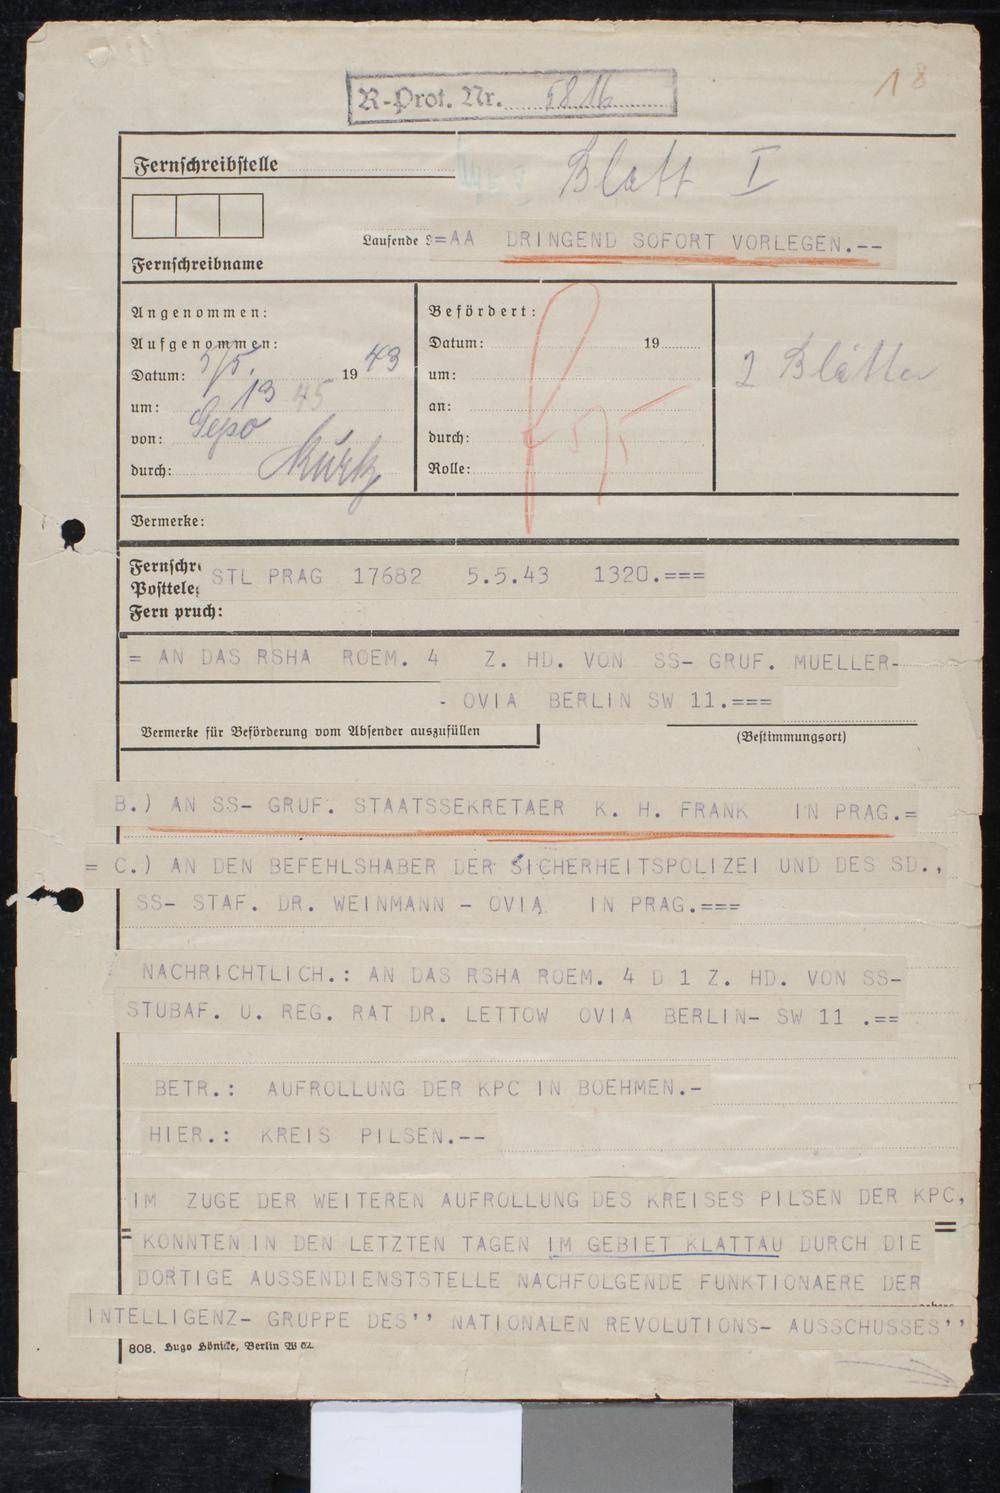 18
R-Prot. Nr. 5816
Fernschreibstelle
Blatt I
Laufende =AA DRINGEND SOFORT VORLEGEN.--
Fernschreibname
Angenommen:
Befördert:
Aufgenommen:
Datum: 19
Datum: 5/5. 19 43
2 Blätter
um: 13 45
um:
an:
von: Gepo
durch:
durch: Kurtz
Rolle:
5/5
Vermerke:
Fernschr
Posttele
STL PRAG 17682 5.5.43 1320.===
Fern pruch:
= AN DAS RSHA ROEM. 4 Z. HD. VON SS- GRUF. MUELLER-
- OVIA BERLIN SW 11.===
Vermerke für Beförderung vom Absender auszufüllen
(Bestimmungsort)
B.) AN SS- GRUF. STAATSSEKRETAER K. H. FRANK IN PRAG.=
= C.) AN DEN BEFEHLSHABER DER SICHERHEITSPOLIZEI UND DES SD.,
SS- STAF. DR. WEINMANN - OVIA IN PRAG.===
NACHRICHTLICH.: AN DAS RSHA ROEM. 4 D 1 Z. HD. VON SS-
STUBAF. U. REG. RAT DR. LETTOW OVIA BERLIN- SW 11 .==
BETR.: AUFROLLUNG DER KPC IN BOEHMEN.-
HIER.: KREIS PILSEN.--
IM ZUGE DER WEITEREN AUFROLLUNG DES KREISES PILSEN DER KPC,
KONNTEN IN DEN LETZTEN TAGEN IM GEBIET KLATTAU DURCH DIE
DORTIGE AUSSENDIENSTSTELLE NACHFOLGENDE FUNKTIONAERE DER
INTELLIGENZ- GRUPPE DES'' NATIONALEN REVOLUTIONS- AUSSCHUSSES''
808. Hugo Hönicke, Berlin W 62.